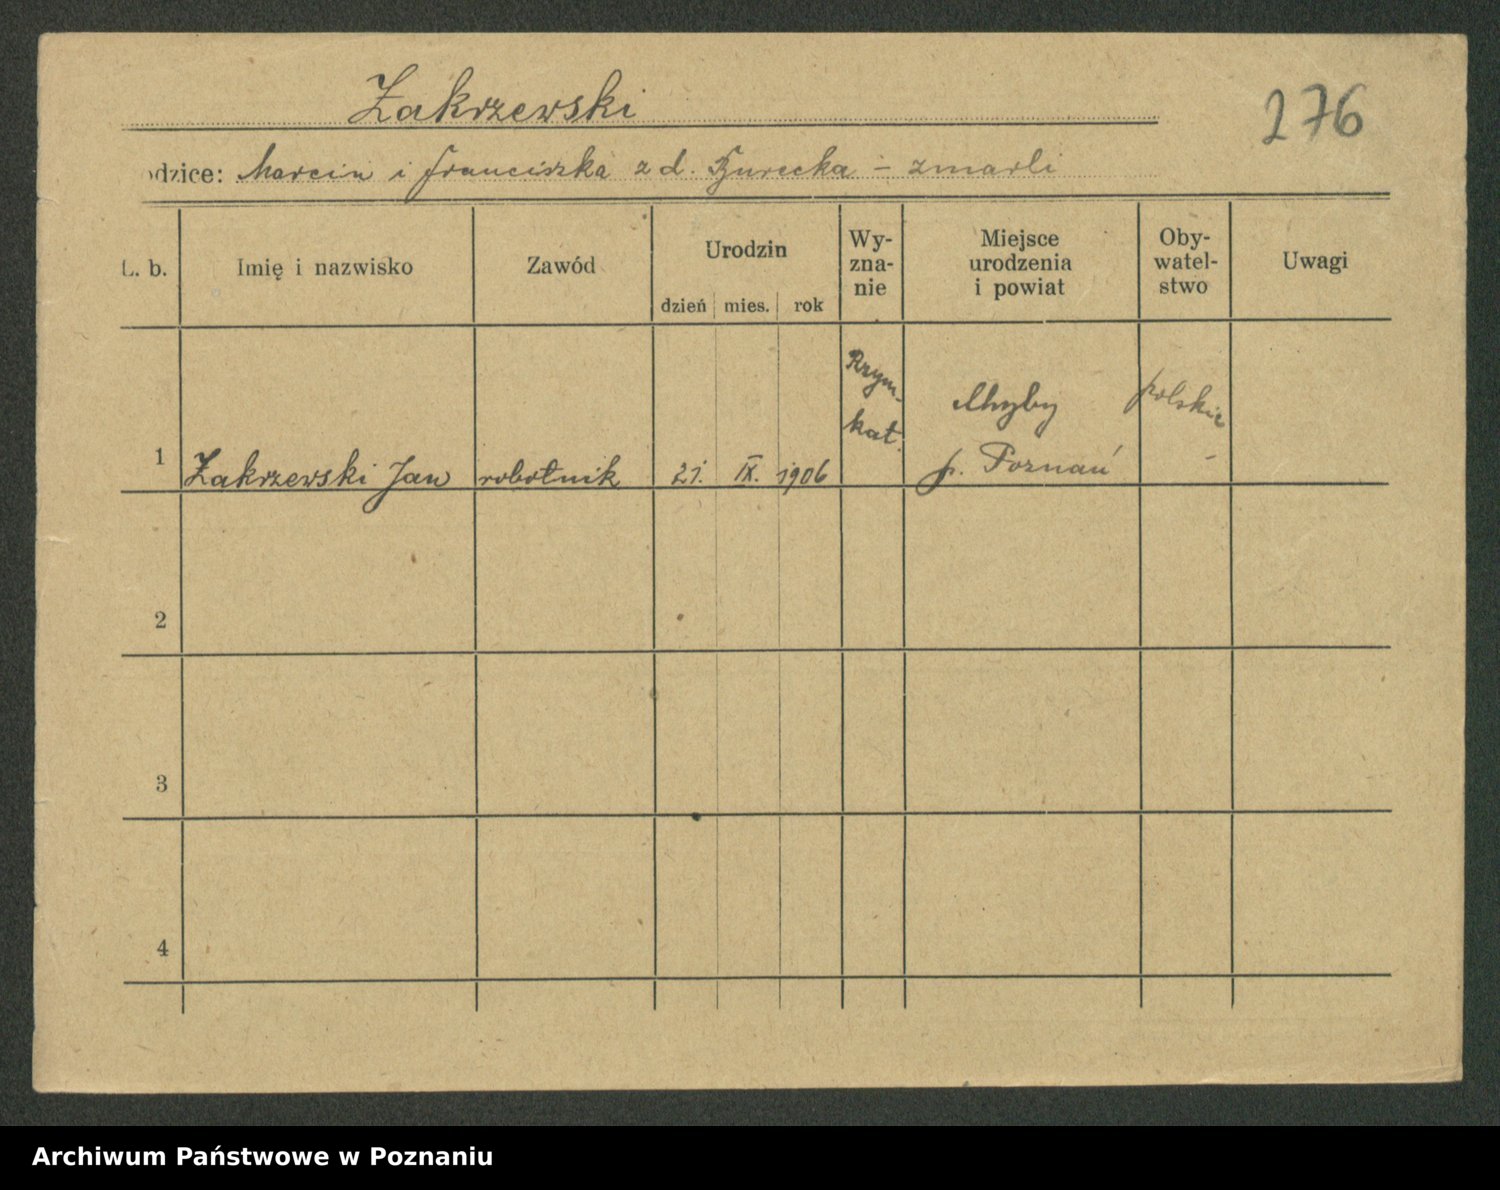 Zakrzewski
276
odzice: Marcin i Franciszka z d. - zmarli
L. b.
Imię i nazwisko
Zawód
Urodzin
dzień mies. rok
Wy-
zna-
nie
Miejsce
urodzenia
i powiat
Oby-
watel-
stwo
Uwagi
1
Zakrzewski Jan
robotnik
21. IX. 1906
Rzym.
kat.
Chyby
p. Poznań
polskie
-
2
3
4
Archiwum Państwowe w Poznaniu